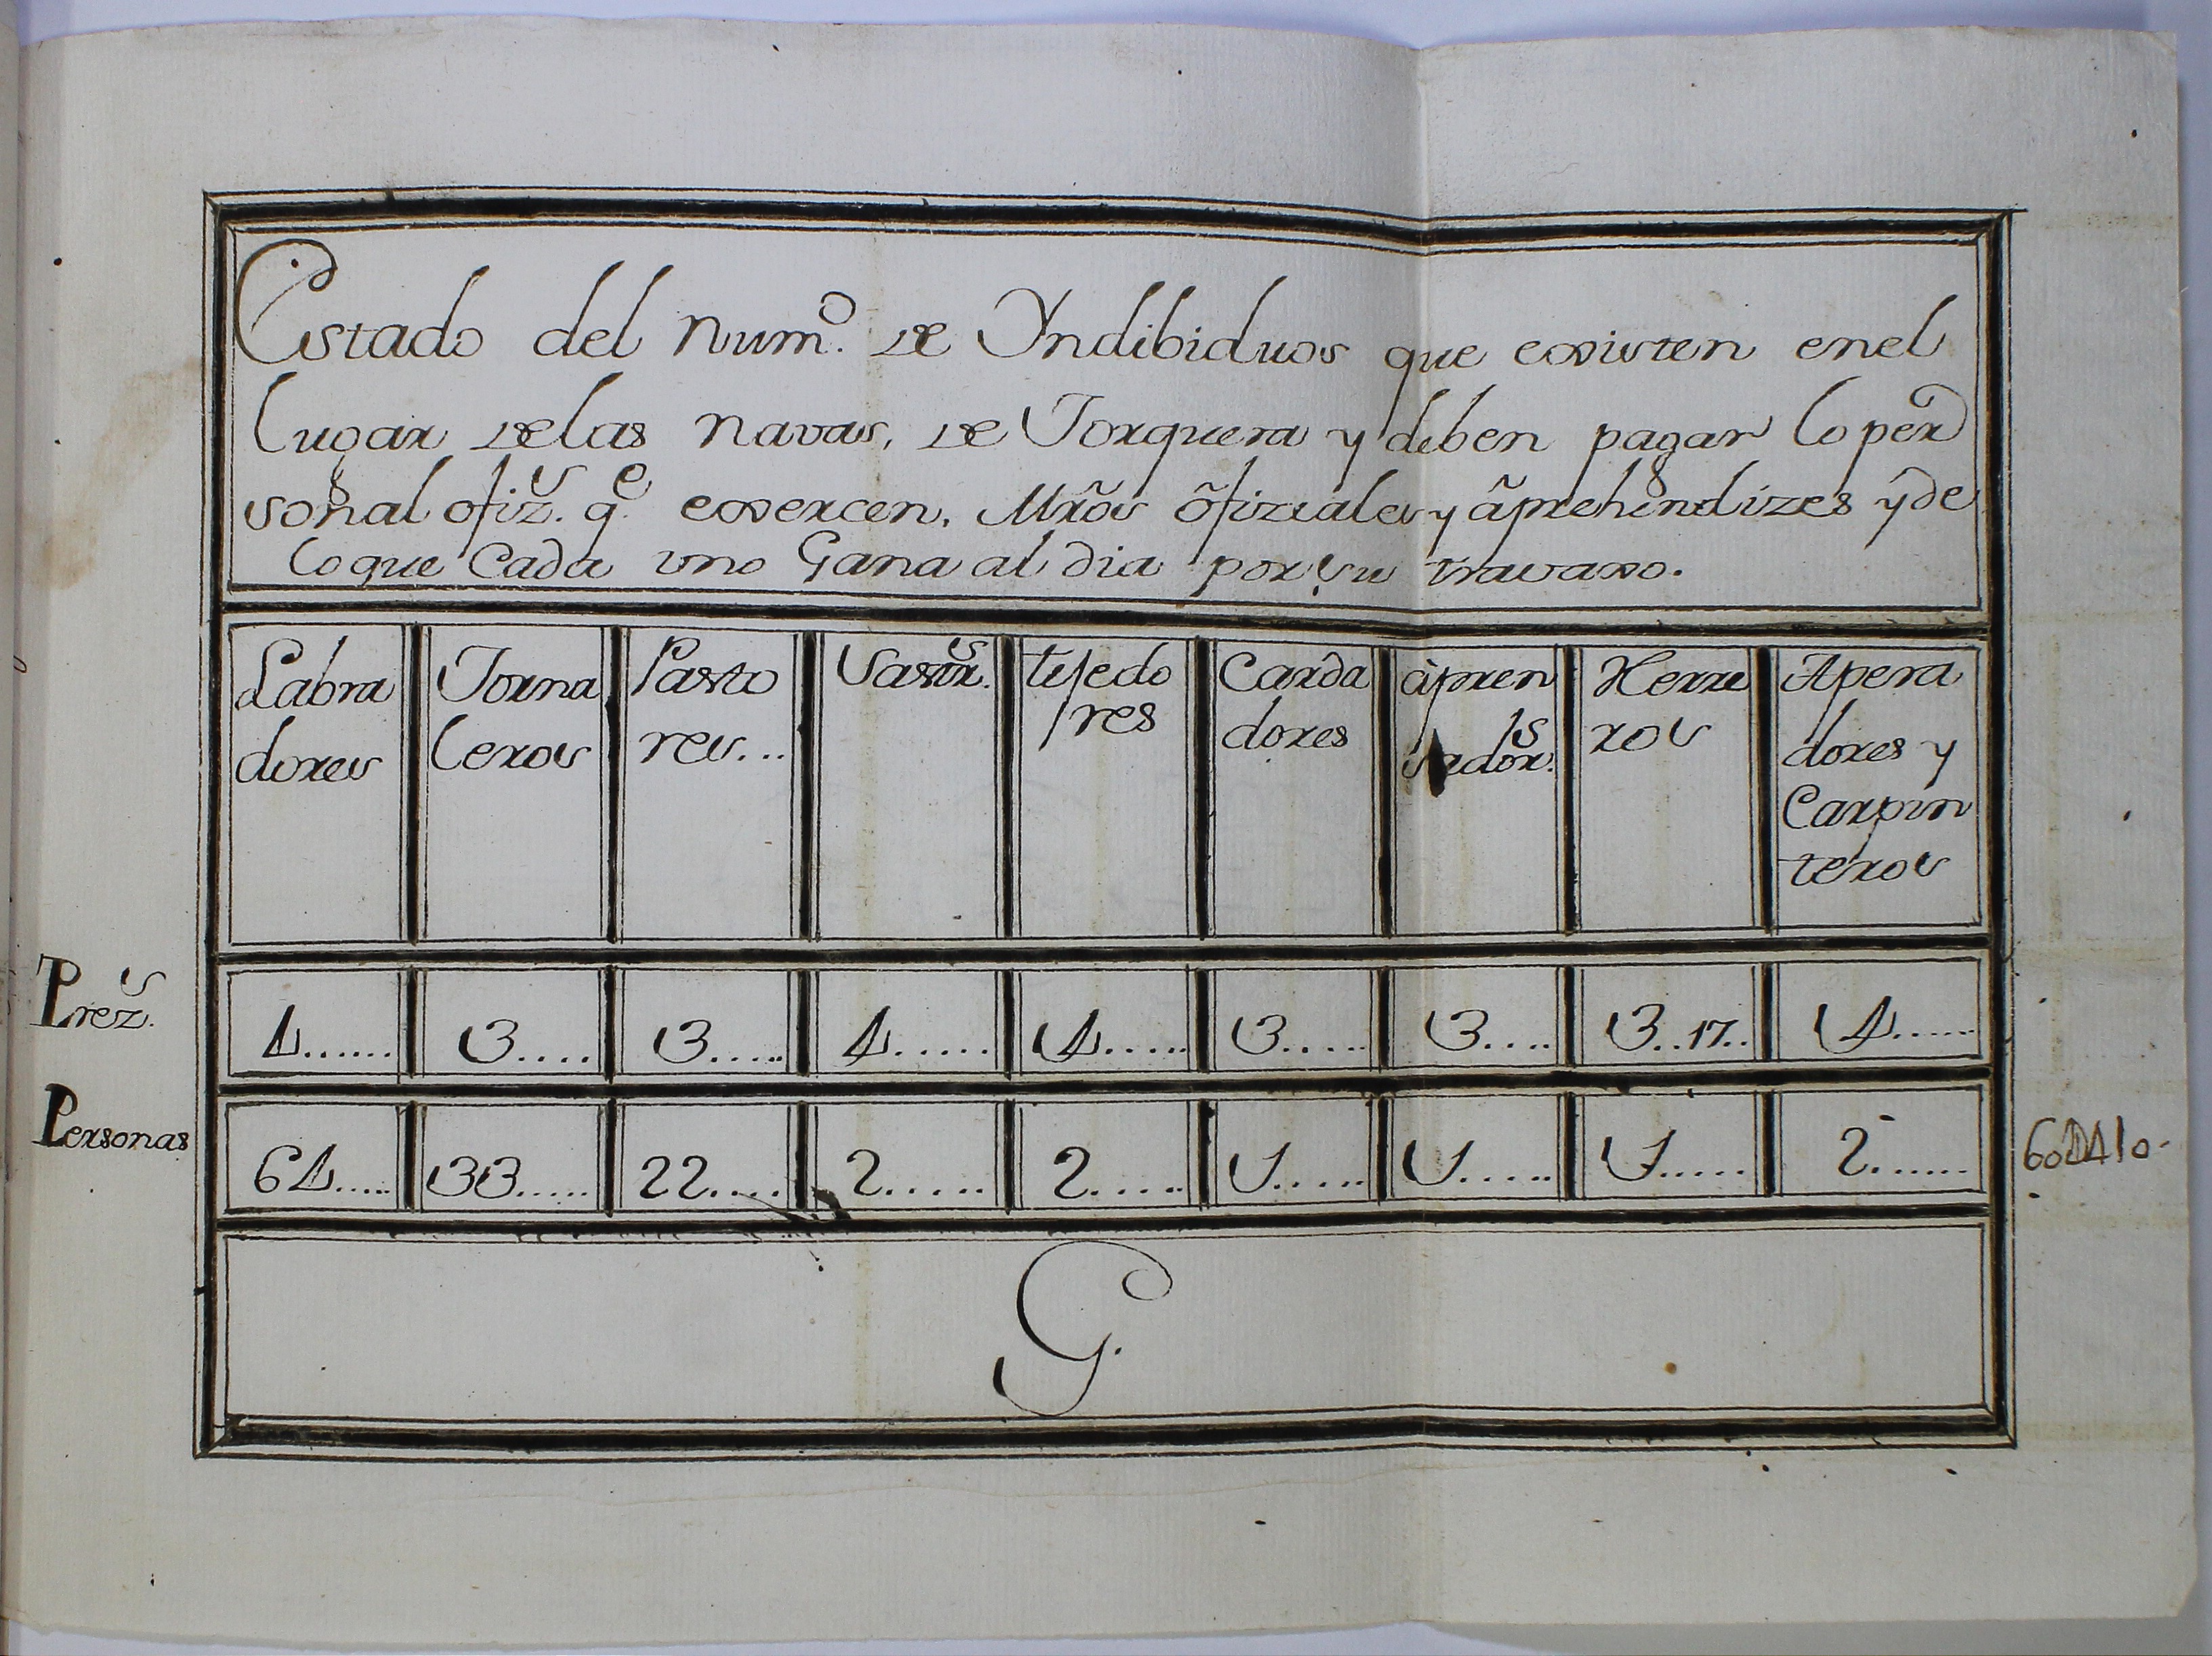 Estado del Num.º de Yndibiduos que existen enel
lugar delas navas, de Jorquera y deben pagar lo per
sonal ofiz.s q.e exercen. Mrõs õfiziales y ãprehendizes y de
loque Cada uno Gana al dia por su travaxo.
Labra
dores
Jorna
leros
Pasto
res...
Sastr.s
teJedo
res
Carda
dores
àpren
sador.s
Herre
ros
Apera
dores y
Carpin
teros
Prez.s
4...... 3.... 3..... 4...... 4..... 3..... 3.... 3..17.. 4......
Personas
64..... 33..... 22.... 2..... 2..... 1..... 1..... 1..... 2......
G.